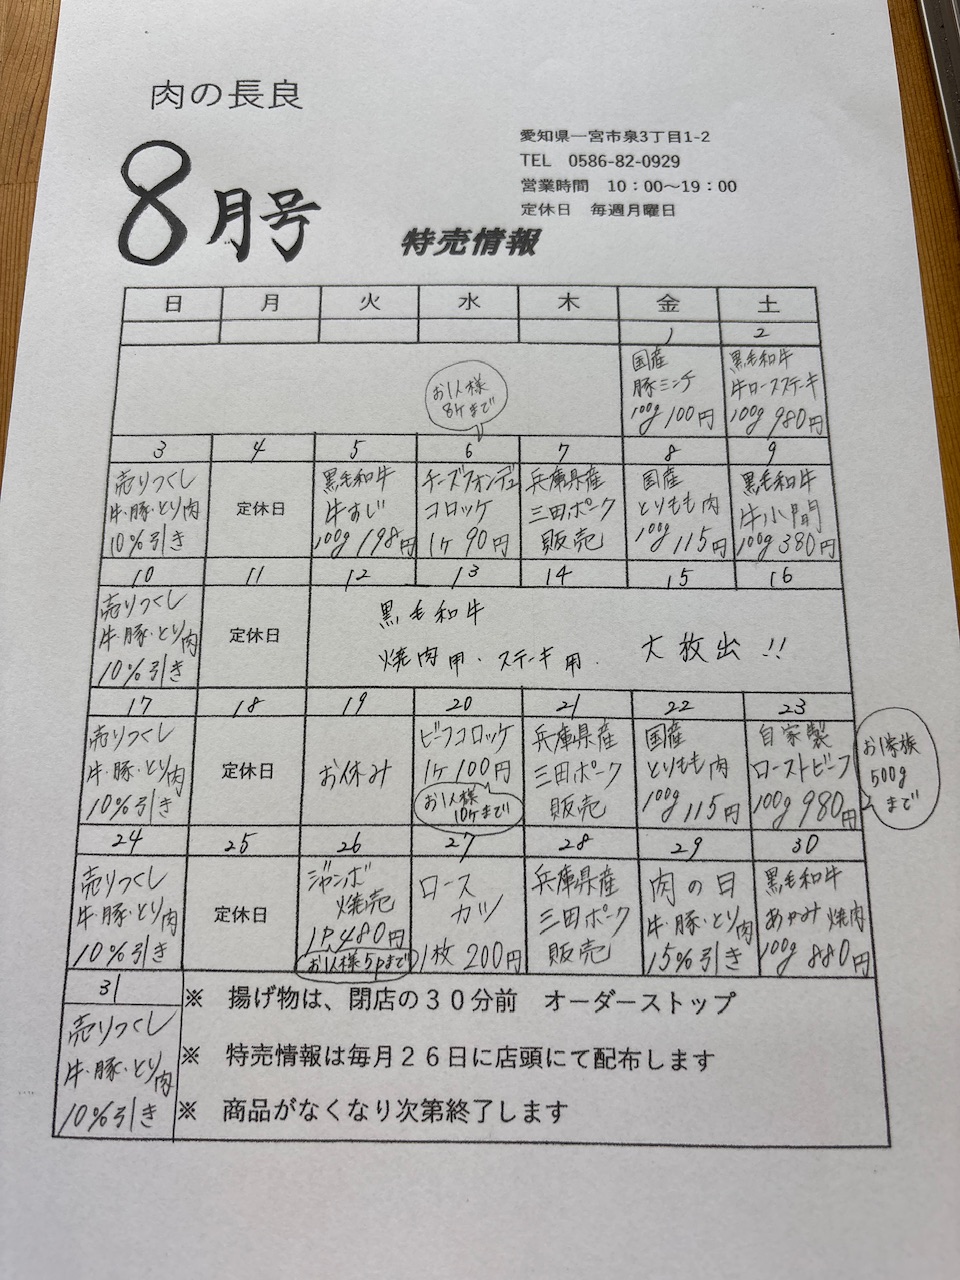 肉の長良
8月号
愛知県一宮市泉3丁目1-2
TEL 0586-82-0929
営業時間 10：00～19：00
定休日 毎週月曜日
特売情報
日 月 火 水 木 金 土
1 2
国産
豚ミンチ
100g 100円
黒毛和牛
牛ロースステーキ
100g 980円
お1人様
8ケまで
3 4 5 6 7 8 9
売りつくし
牛・豚・とり肉
10%引き
定休日
黒毛和牛
牛すじ
100g 198円
チーズフォンデュ
コロッケ
1ケ 90円
兵庫県産
三田ポーク
販売
国産
とりもも肉
100g 115円
黒毛和牛
牛小間
100g 380円
10 11 12 13 14 15 16
売りつくし
牛・豚・とり肉
10%引き
定休日
黒毛和牛
焼肉用・ステーキ用・ 大放出!!
17 18 19 20 21 22 23
売りつくし
牛・豚・とり肉
10%引き
定休日
お休み
ビーフコロッケ
1ケ 100円
お1人様
10ケまで
兵庫県産
三田ポーク
販売
国産
とりもも肉
100g 115円
自家製
ローストビーフ
100g 980円
お1家族
500g
まで
24 25 26 27 28 29 30
売りつくし
牛・豚・とり肉
10%引き
定休日
ジャンボ
焼売
1P 480円
お1人様5pまで
ロース
カツ
1枚 200円
兵庫県産
三田ポーク
販売
肉の日
牛・豚・とり肉
15%引き
黒毛和牛
あみ焼肉
100g 880円
31
売りつくし
牛・豚・とり肉
10%引き
※ 揚げ物は、閉店の３０分前 オーダーストップ
※ 特売情報は毎月２６日に店頭にて配布します
※ 商品がなくなり次第終了します